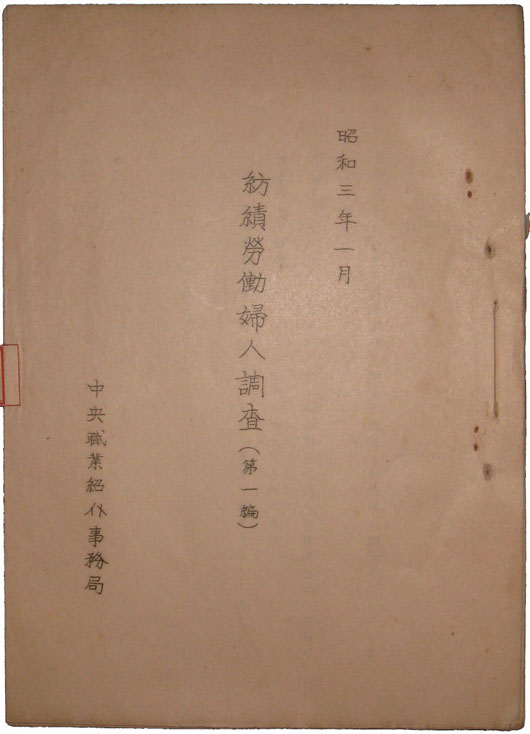 昭和三年一月
紡績勞働婦人調査（第一編）
中央職業紹介事務局